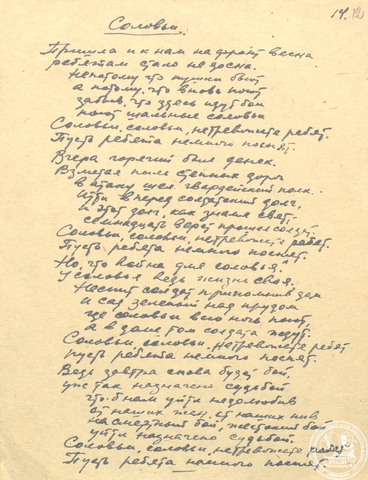 14. 12
Соловьи.
Пришла и к нам на фронт весна
ребятам стало не до сна.
Не потому что пушки бьют
а потому, что вновь поют
забыв, что здесь идут бои
поют шальные соловьи
Соловьи, соловьи, не тревожьте ребят.
Пусть ребята немного поспят.
Вчера горячий был денек.
Взметая пыль степных дорог
в атаку шел гвардейский полк.
Идти вперед солдатский долг,
и этот долг, как знамя свят.
семнадцать верст прошел солдат.
Соловьи, соловьи, не тревожьте ребят.
Пусть ребята немного поспят.
Но, что война для соловья.
У соловья ведь жизнь своя.
Не спит солдат припомнив дом
и сад зеленый над прудом
где соловьи всю ночь поют,
а в доме том солдата ждут.
Соловьи, соловьи, не тревожьте ребят
пусть ребята немного поспят.
Ведь завтра снова будет бой.
уже так назначено судьбой
что б нам уйти недолюбив
от наших жен, от наших нив
на смертный бой, жестокий бой
уйти назначено судьбой.
Соловьи, соловьи, не тревожьте
Пусть ребята немного поспят.